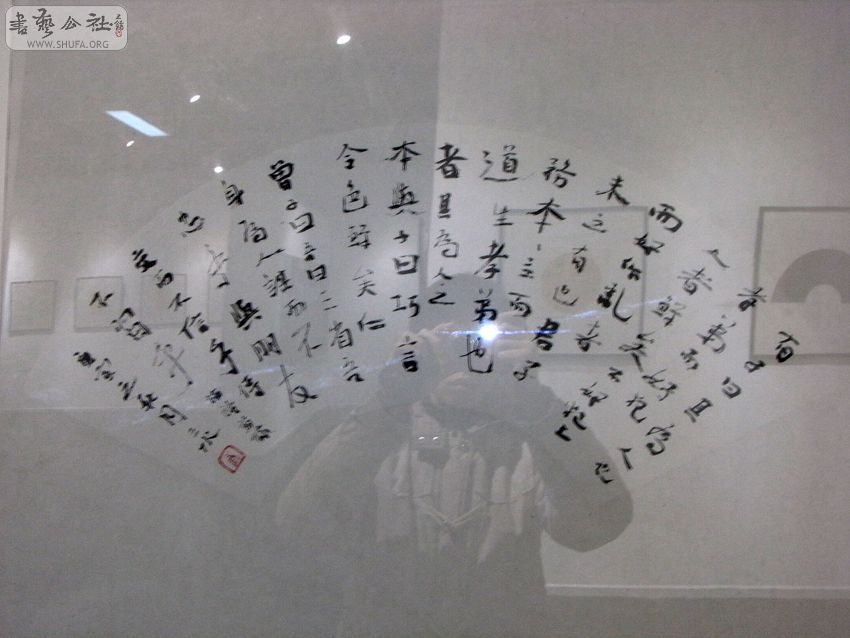 書藝公社
WWW.SHUFA.ORG
有子曰其為人也
孝弟而好犯上
者鮮矣不好犯上
而好作亂者
未之有也君子
務本〻立而
道生孝弟也
者其為人之
本與子曰巧言
令色鮮矣仁
曾子曰吾日三省吾
身為人謀而不
忠乎與朋友
交而不信乎傳
不習乎
庚寅五月